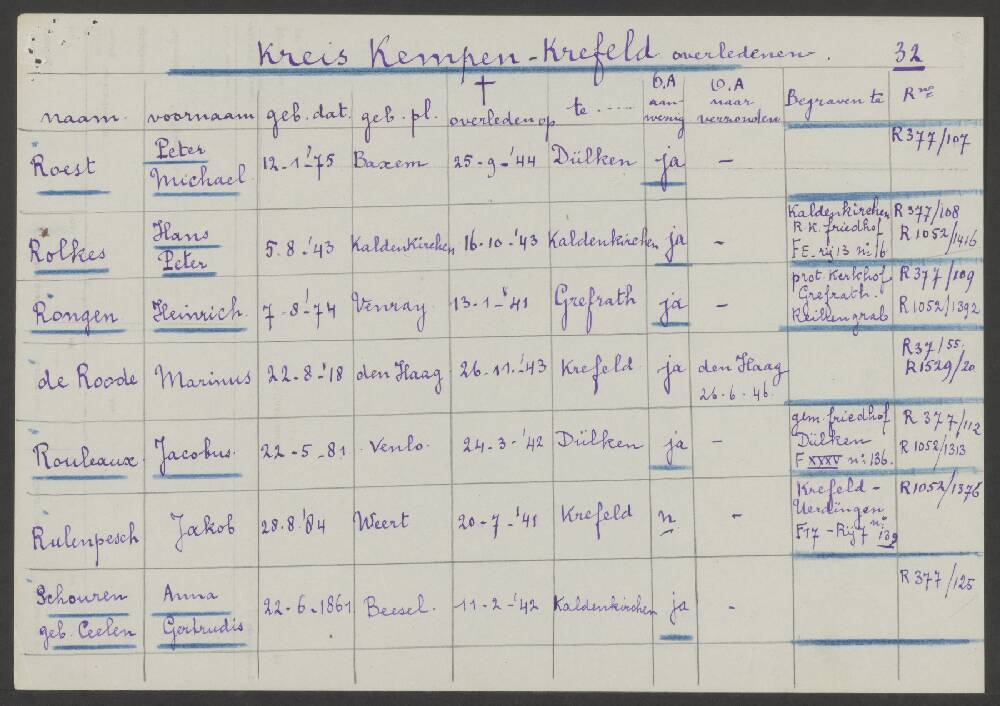 Kreis Kempen-Krefeld overledenen. 32
naam. voornaam geb. dat. geb. pl. † overleden op te ..... O.A aanwezig O.A naar verzonden Begraven te R nrs
Roest Peter Michael 12-1-'75 Baxem 25-9-'44 Dülken ja - R377/107
Rolkes Hans Peter 5.8.'43 Kaldenkirchen 16-10-'43 Kaldenkirchen ja - Kaldenkirchen R.K. friedhof FE-rij 13 nr 16 R377/108 R1052/1416
Rongen Heinrich. 7-8-'74 Venray 13-1-'41 Grefrath ja - prot. Kerkhof Grefrath. Reihengrab R377/109 R1052/1392
de Roode Marinus 22-8-'18 den Haag 26-11-'43 Krefeld ja den Haag 26-6-46. R37/55. R1529/20
Rouleaux Jacobus. 22-5-81 Venlo. 24-3-'42 Dülken ja - gem. friedhof Dülken F XXXV nr: 136. R377/112 R1052/1313
Rulenpesch Jakob 28.8.'84 Weert 20-7-'41 Krefeld n - Krefeld-Uerdingen F17-Rij 7 nr: 139 R1052/1376
Schouren geb. Ceelen Anna Gertrudis 22-6-1861 Beesel. 11-2-'42 Kaldenkirchen ja - R377/125